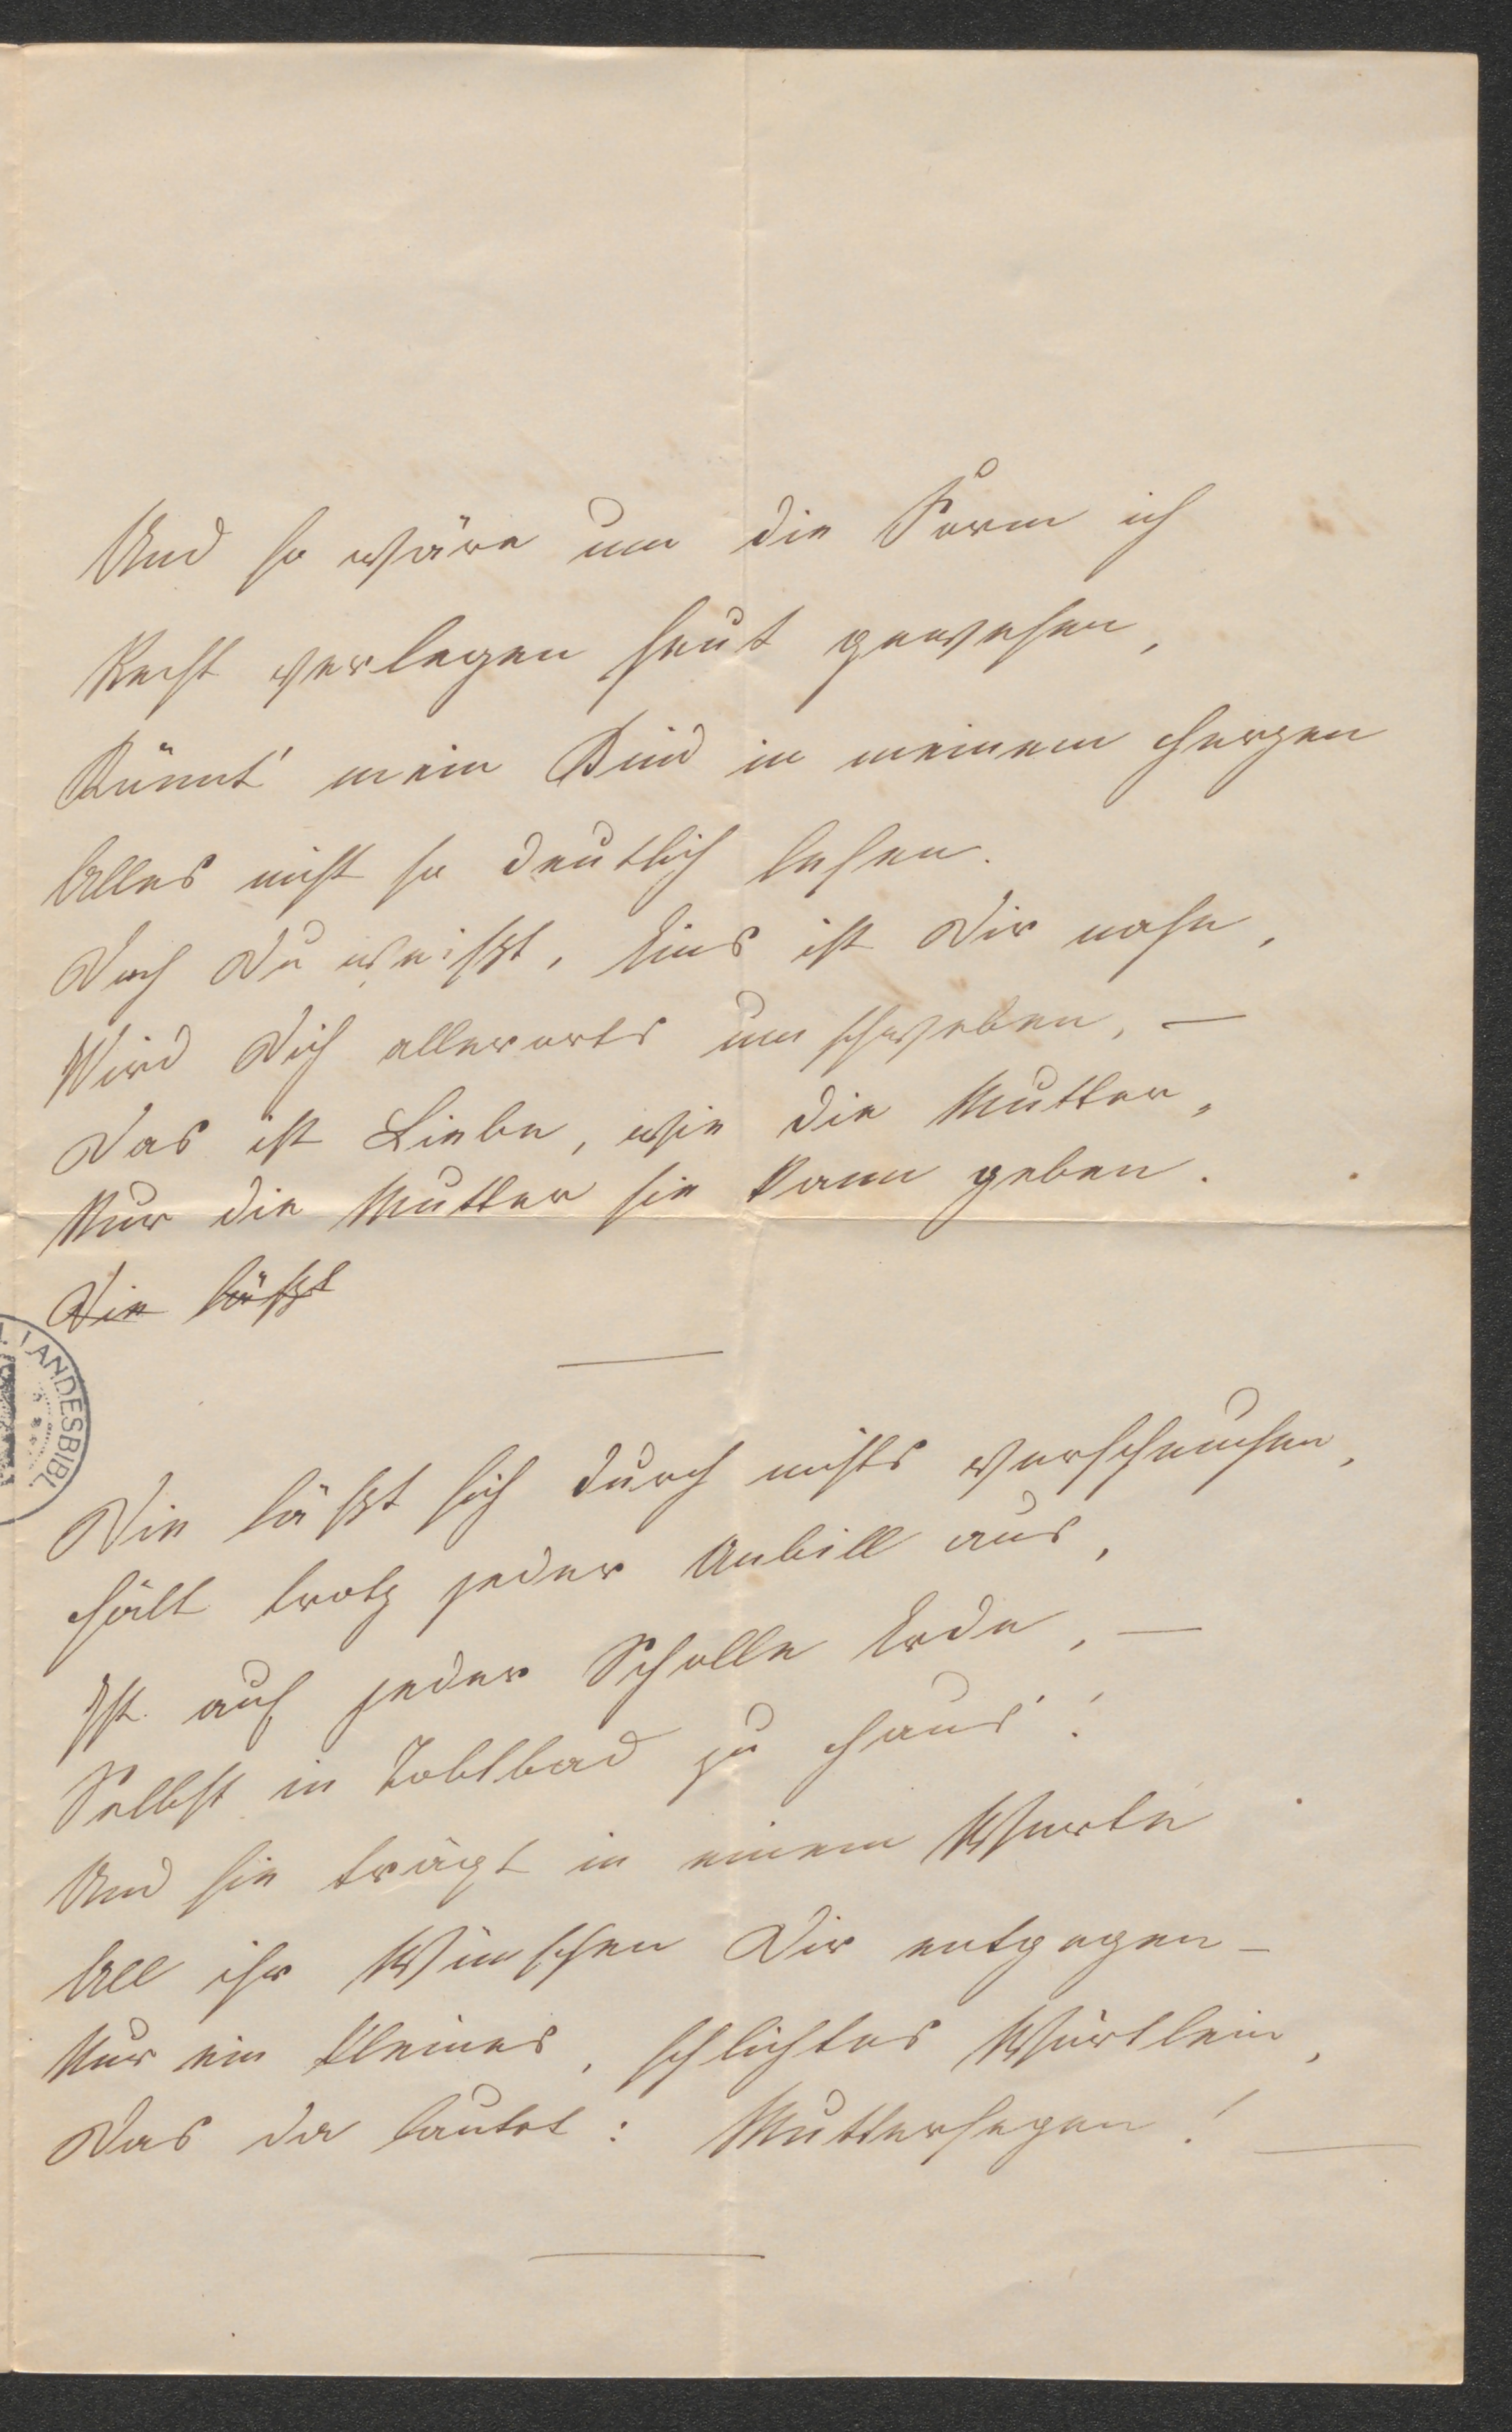 Und so wäre um die Form ich
Recht verlegen heut gewesen,
Könnt' mein Kind in meinem Herzen
Alles nicht so deutlich lesen.
Doch Du weißt, Eins ist Dir nahe,
Wird Dich allerorts umschweben, —
Das ist Liebe, wie die Mutter,
Nur die Mutter sie kann geben.
Die läßt
Die läßt sich durch nichts verscheuchen,
Hält trotz jeder Unbill aus,
Ist auf jeder Scholle Erde, —
Selbst in Tobelbad zu Haus'!
Und sie trägt in einem Worte
All ihr Wünschen Dir entgegen –
Nur ein kleines, schlichtes Wörtlein,
Das da lautet: Muttersegen! —
LANDESBIBL.